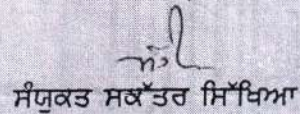 ਸੰਯੁਕਤ ਸਕੱਤਰ ਸਿੱਖਿਆ